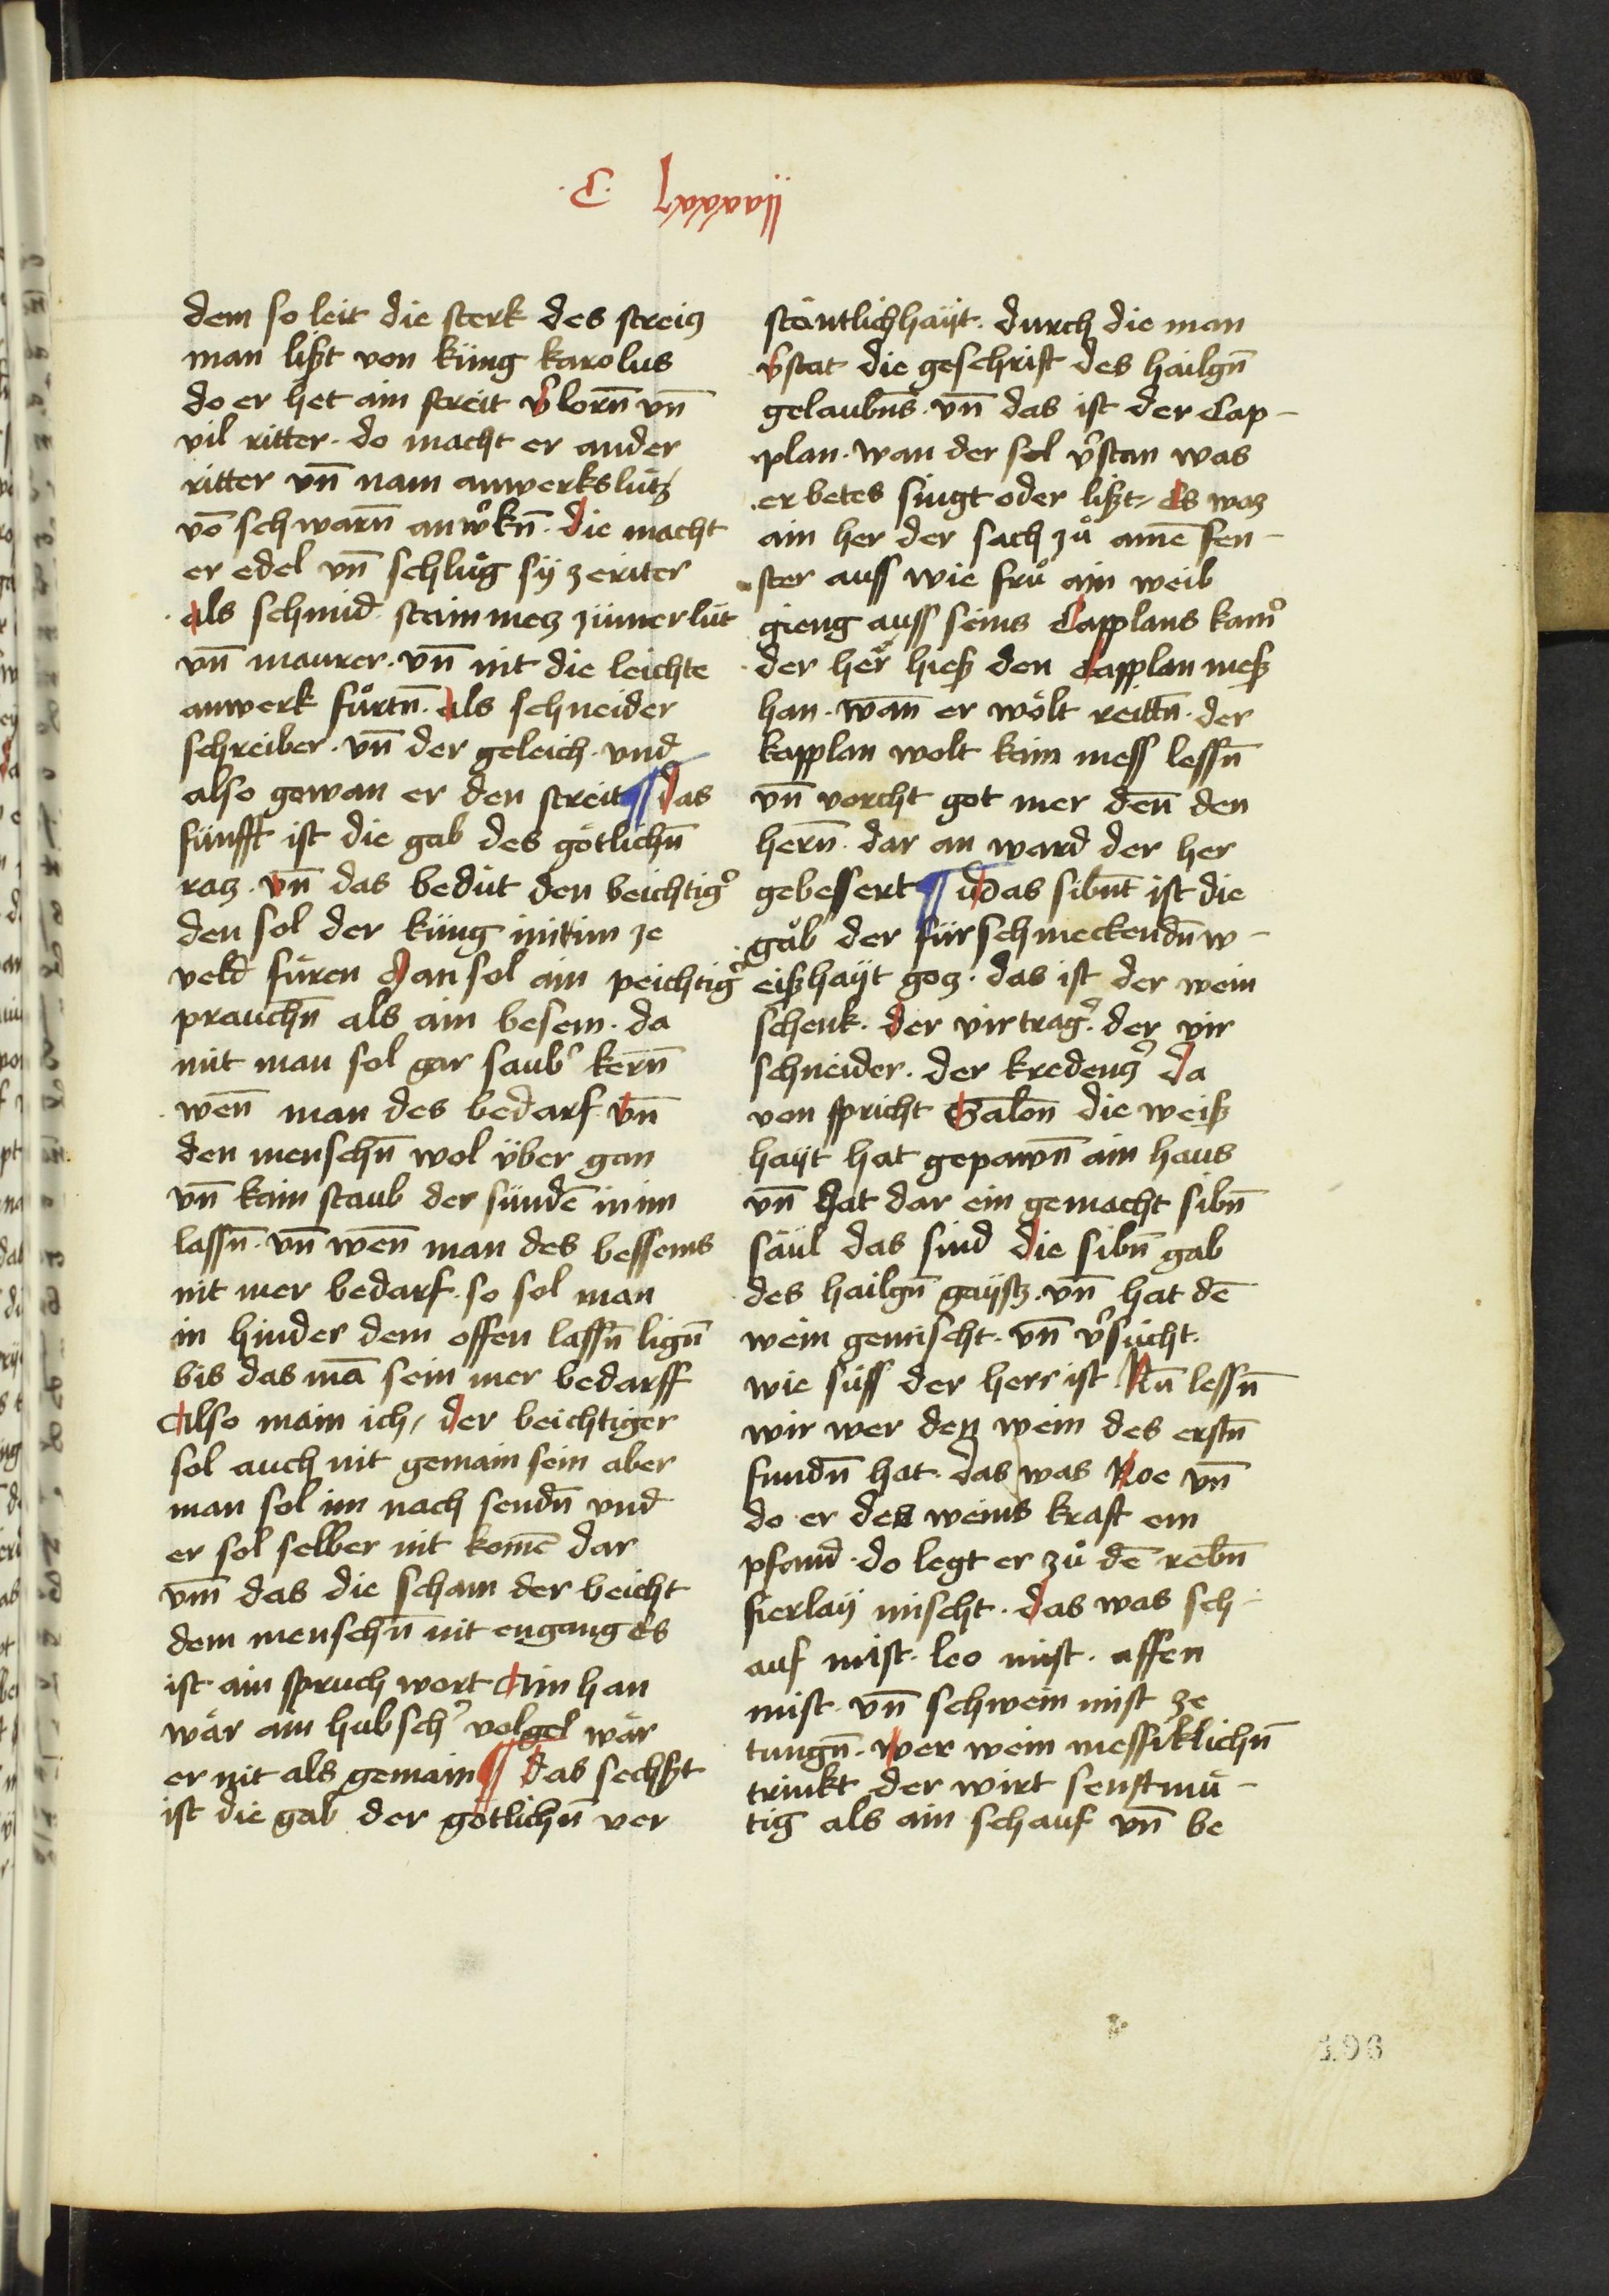 dem so leit die sterk des streicz
man lißt von küng karolus
do er het ain streit v̾lorn̄ vn̄
vil ritter · do macht er ander
ritter vn̄ nam anwerkslütz
vō schwarn̄ anw̾kn̄ · die macht
er edel vn̄ schlůg sÿ ze riter
als schmid stainmecz zimerlüt
vn̄ maurer · vn̄ nit die leichte
anwerk fůrtn̄ · als schneider
schreiber · vn̄ der geleich · vnd
also gewan er den streit ¶ das
fünfft ist die gab des götlichn̄
racz · vn̄ das bedüt den beichtig̾
den sol der küng mit im ze
veld füren Man sol ain peichtig̾
prauchn̄ als ain besem · da
mit man sol gar saub̾ kern̄
wen̄ man des bedarf vn̄
den menschn̄ wol über gan
vn̄ kain staub der sündē in im
lassn̄ · vn̄ wen̄ man des bessems
nit mer bedarf · so sol man
in hinder dem offen lassn̄ lign̄
bis das mā sein mer bedarff
Also main ich / der beichtiger
sol auch nit gemain sein aber
man sol im nach sendn̄ vnd
er sol selber nit komē dar
vm̄ das die scham der beicht
dem menschn̄ nit engang Es
ist ain spruch wort Ain han
wär ain hubsch̾ volgel wär
er nit als gemain ¶ das sechßt
ist die gab der götlichn̄ ver
stäntlichhaÿt · durch die man
v̾stat die geschrift des hailgn̄
gelaubn̄s · vn̄ das ist der Cap-
plan · wan der sol v̾stan was
er betes singt oder lißt / Es waz
ain her der sach zů amē fen-
ster auss wie frů ain weib
gieng auss seins Capplans kam̾
der her̾ hieß den Capplan meß
han · wan̄ er wölt reittn̄ · der
kapplan wolt kain mess lessn̄
vn̄ vorcht got mer den̄ den
hern̄ · dar an ward der her
gebessert ¶ Das sibn̄t ist die
gäb der fürschmeckendn̄ w-
eißhaÿt gocz · das ist der wein
schenk · der vir trag̾ · der vir
schneider · der kredencz̾ da
von spricht Salon̄ die weiß
haÿt hat gepawn̄ ain haus
vn̄ hat dar ein gemacht sibn̄
säul das sind die sibn̄ gab
des hailgn̄ gaÿstz · vn̄ hat dē
wein gemischt · vn̄ v̾sücht ·
wie süss der herr ist Nū lessn̄
wir wer den wein des erstn̄
fundn̄ hat · das was Noe vn̄
do er des weins kraft em
pfand · do legt er zů dē rebn̄
fierlaÿ mischt · das was sch-
auf mist · leo mist · affen
mist · vn̄ schwein mist ze
tungn̄ · wer wein messiklichn̄
trinkt der wirt senftmü-
tig als ain schauf vn̄ be
196